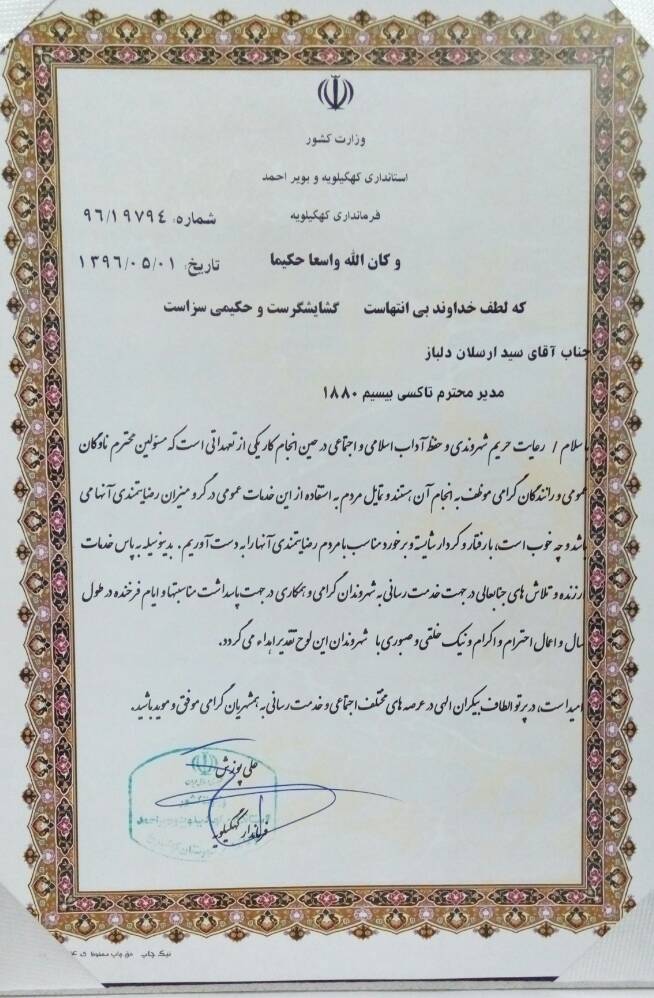 وزارت کشور
استانداری کهگیلویه و بویر احمد
فرمانداری کهگیلویه
شماره: ۹۶/۱۹۷۹٤
و کان الله واسعا حکیما
تاریخ: ۱۳۹٦/۰۵/۰۱
که لطف خداوند بی انتهاست گشایشگرست و حکیمی سزاست
جناب آقای سید ارسلان دلباز
مدیر محترم تاکسی بیسیم ۱۸۸۰
باسلام / رعایت حریم شهروندی و حفظ آداب اسلامی و اجتماعی در حین انجام کار یکی از تعهداتی است که مسئولین محترم ناوگان
عمومی و رانندگان گرامی موظف به انجام آن هستند و تمایل مردم به استفاده از این خدمات عمومی در گرو میزان رضایتمندی آنها می
باشد و چه خوب است، با رفتار و کردار شایسته و برخورد مناسب با مردم رضایتمندی آنها را به دست آوریم. بدینوسیله به پاس خدمات
ارزنده و تلاش های جنابعالی در جهت خدمت رسانی به شهروندان گرامی و همکاری در جهت پاسداشت مناسبتها و ایام فرخنده در طول
سال و اعمال احترام و اکرام و نیک خلقی و صبوری با شهروندان این لوح تقدیر اهداء می گردد.
امید است، در پرتو الطاف بیکران الهی در عرصه های مختلف اجتماعی و خدمت رسانی به همشهریان گرامی موفق و موید باشید.
علی پوزش
فرماندار کهگیلویه
نیک چاپ حق چاپ محفوظ